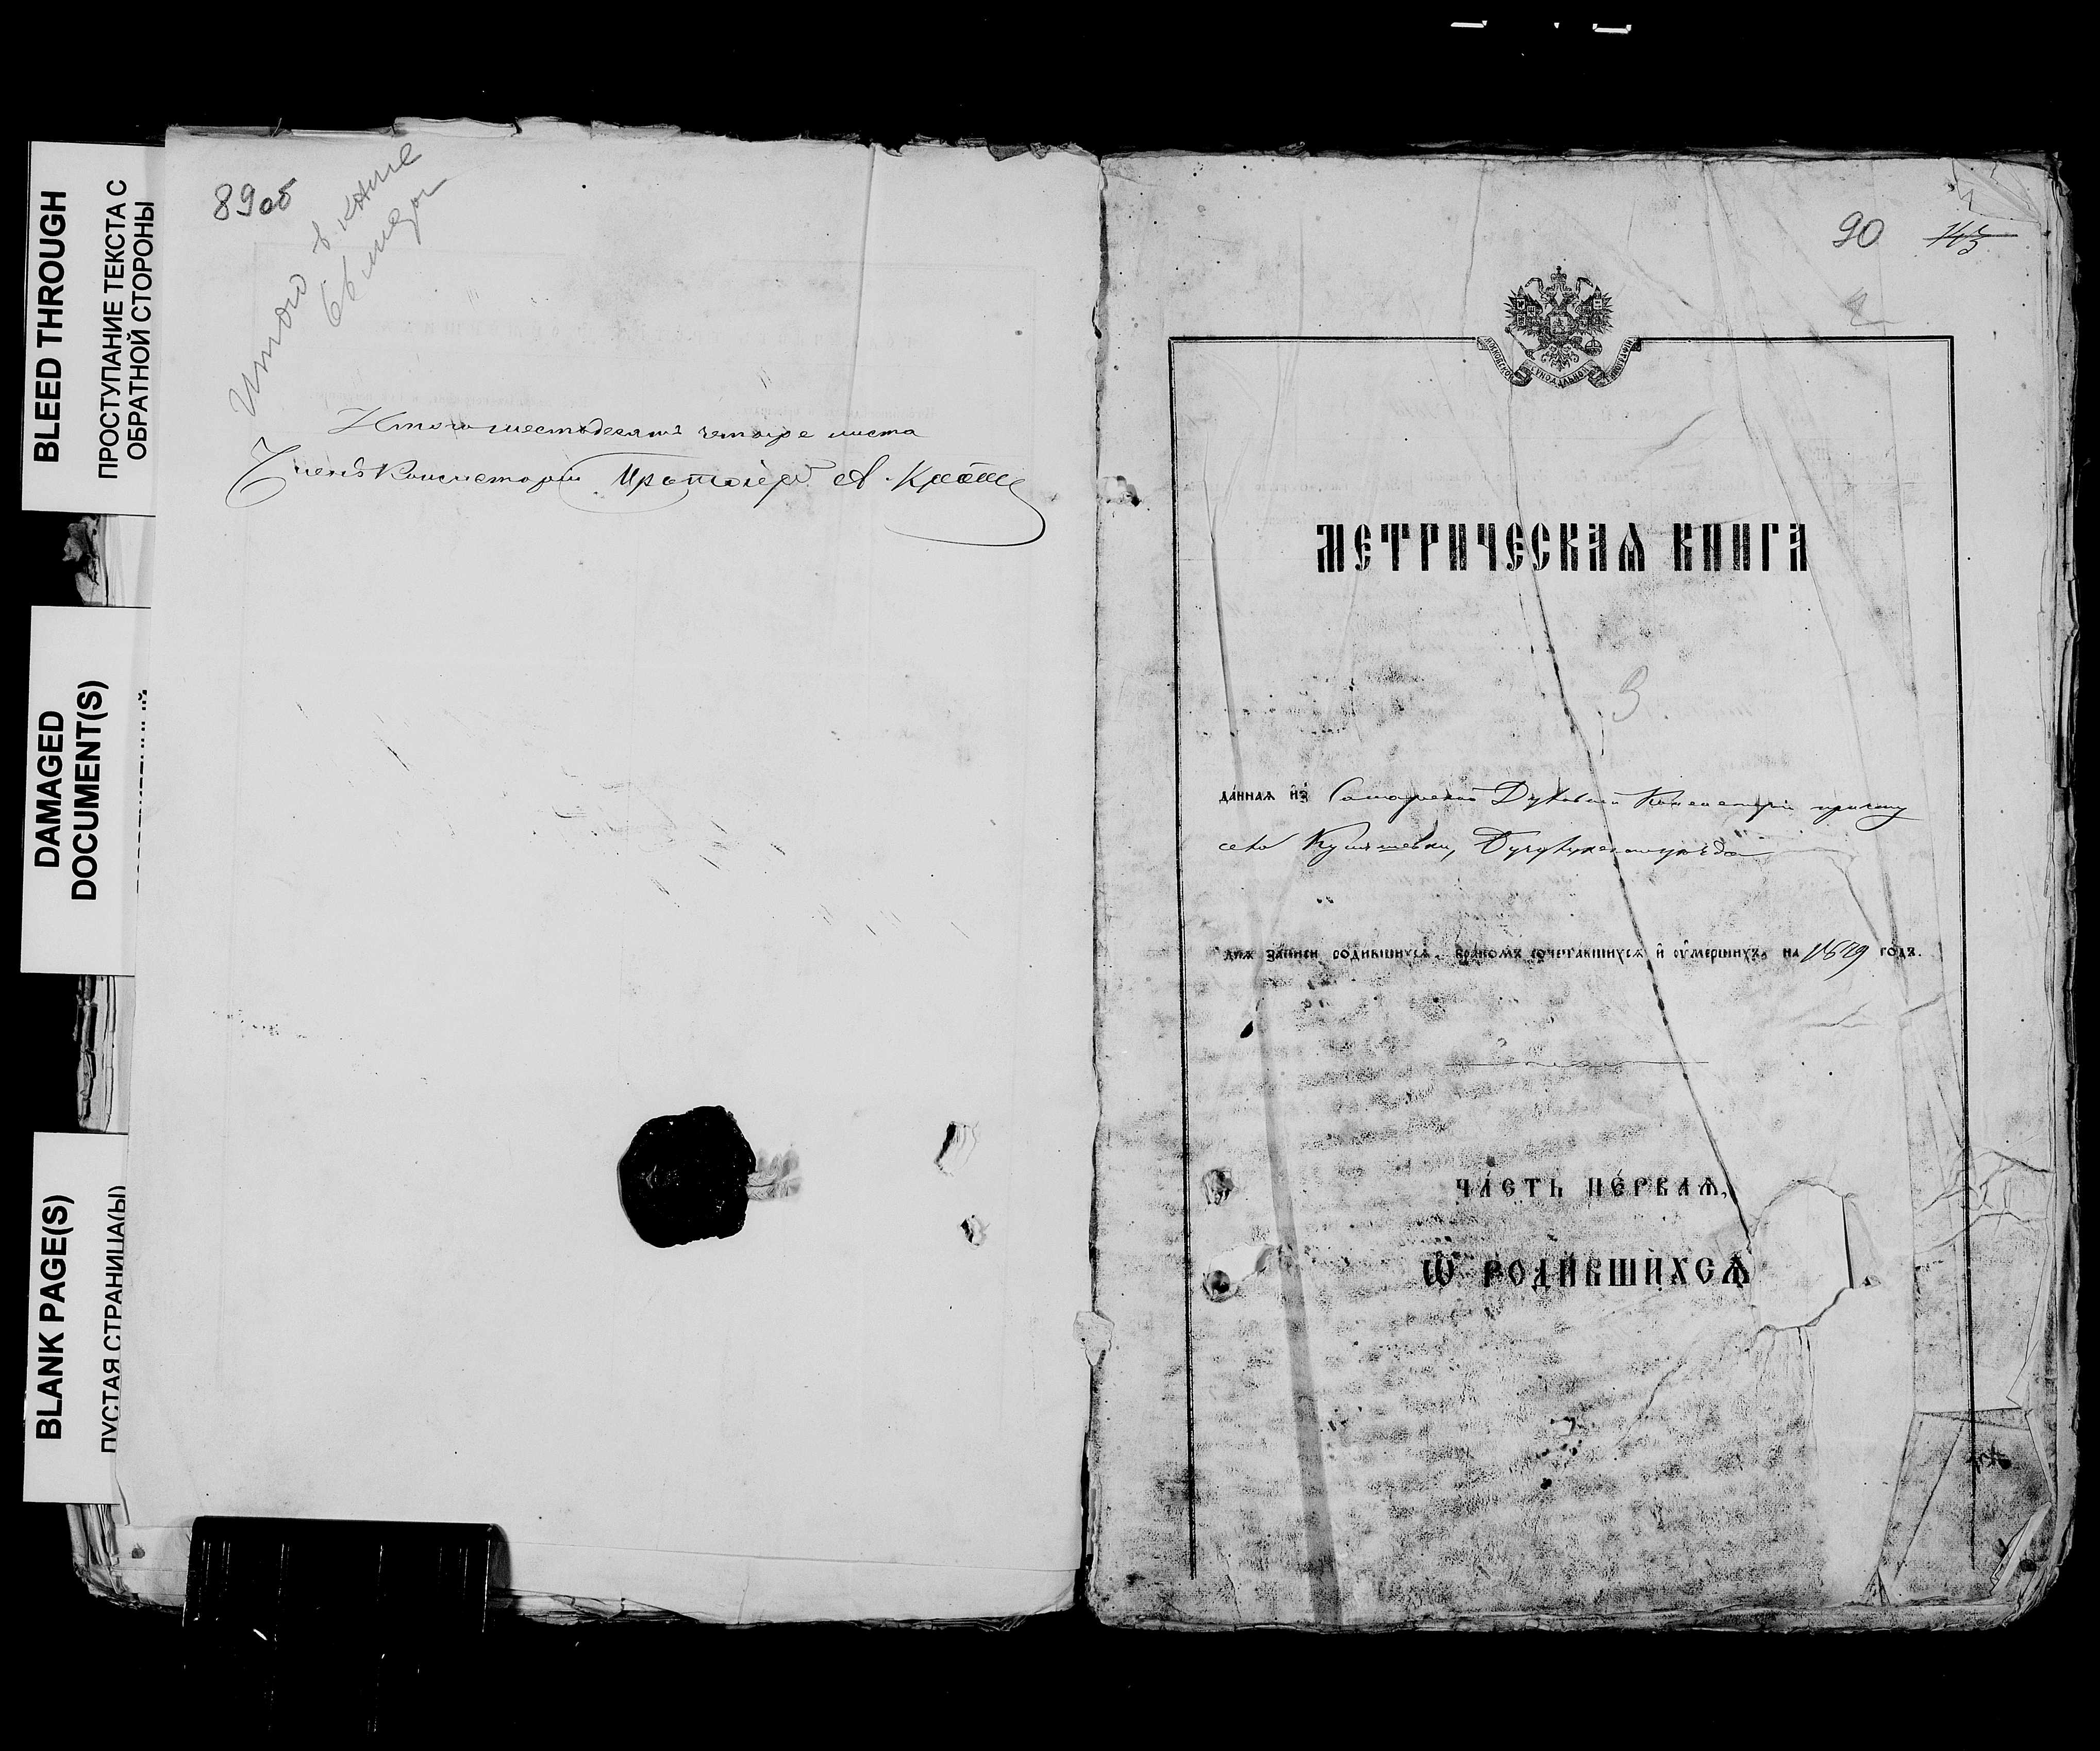 BLEED THROUGH
ПРОСТУПАНИЕ ТЕКСТА С
ОБРАТНОЙ СТОРОНЫ
DAMAGED
DOCUMENT(S)
BLANK PAGE(S)
ПУСТАЯ СТРАНИЦА(Ы)
89об
Итого в книге
66
Итого шестьдесятъ четыре листа
Членъ Консисторіи Протоіер. А.
90 143
МЕТРИЧЕСКАѦ КНИГА
да́ннаѧ и҆з̾ Самарской Духовной Консисторіи причту
села
длѧ за́писи роди́вшихсѧ, бра́комъ сочета́вшихсѧ и҆ ᲂу҆ме́ршихъ на годъ.
ЧА́СТЬ ПЕ́РВАѦ,
Ѡ҆ РОДИ́ВШИХСѦ